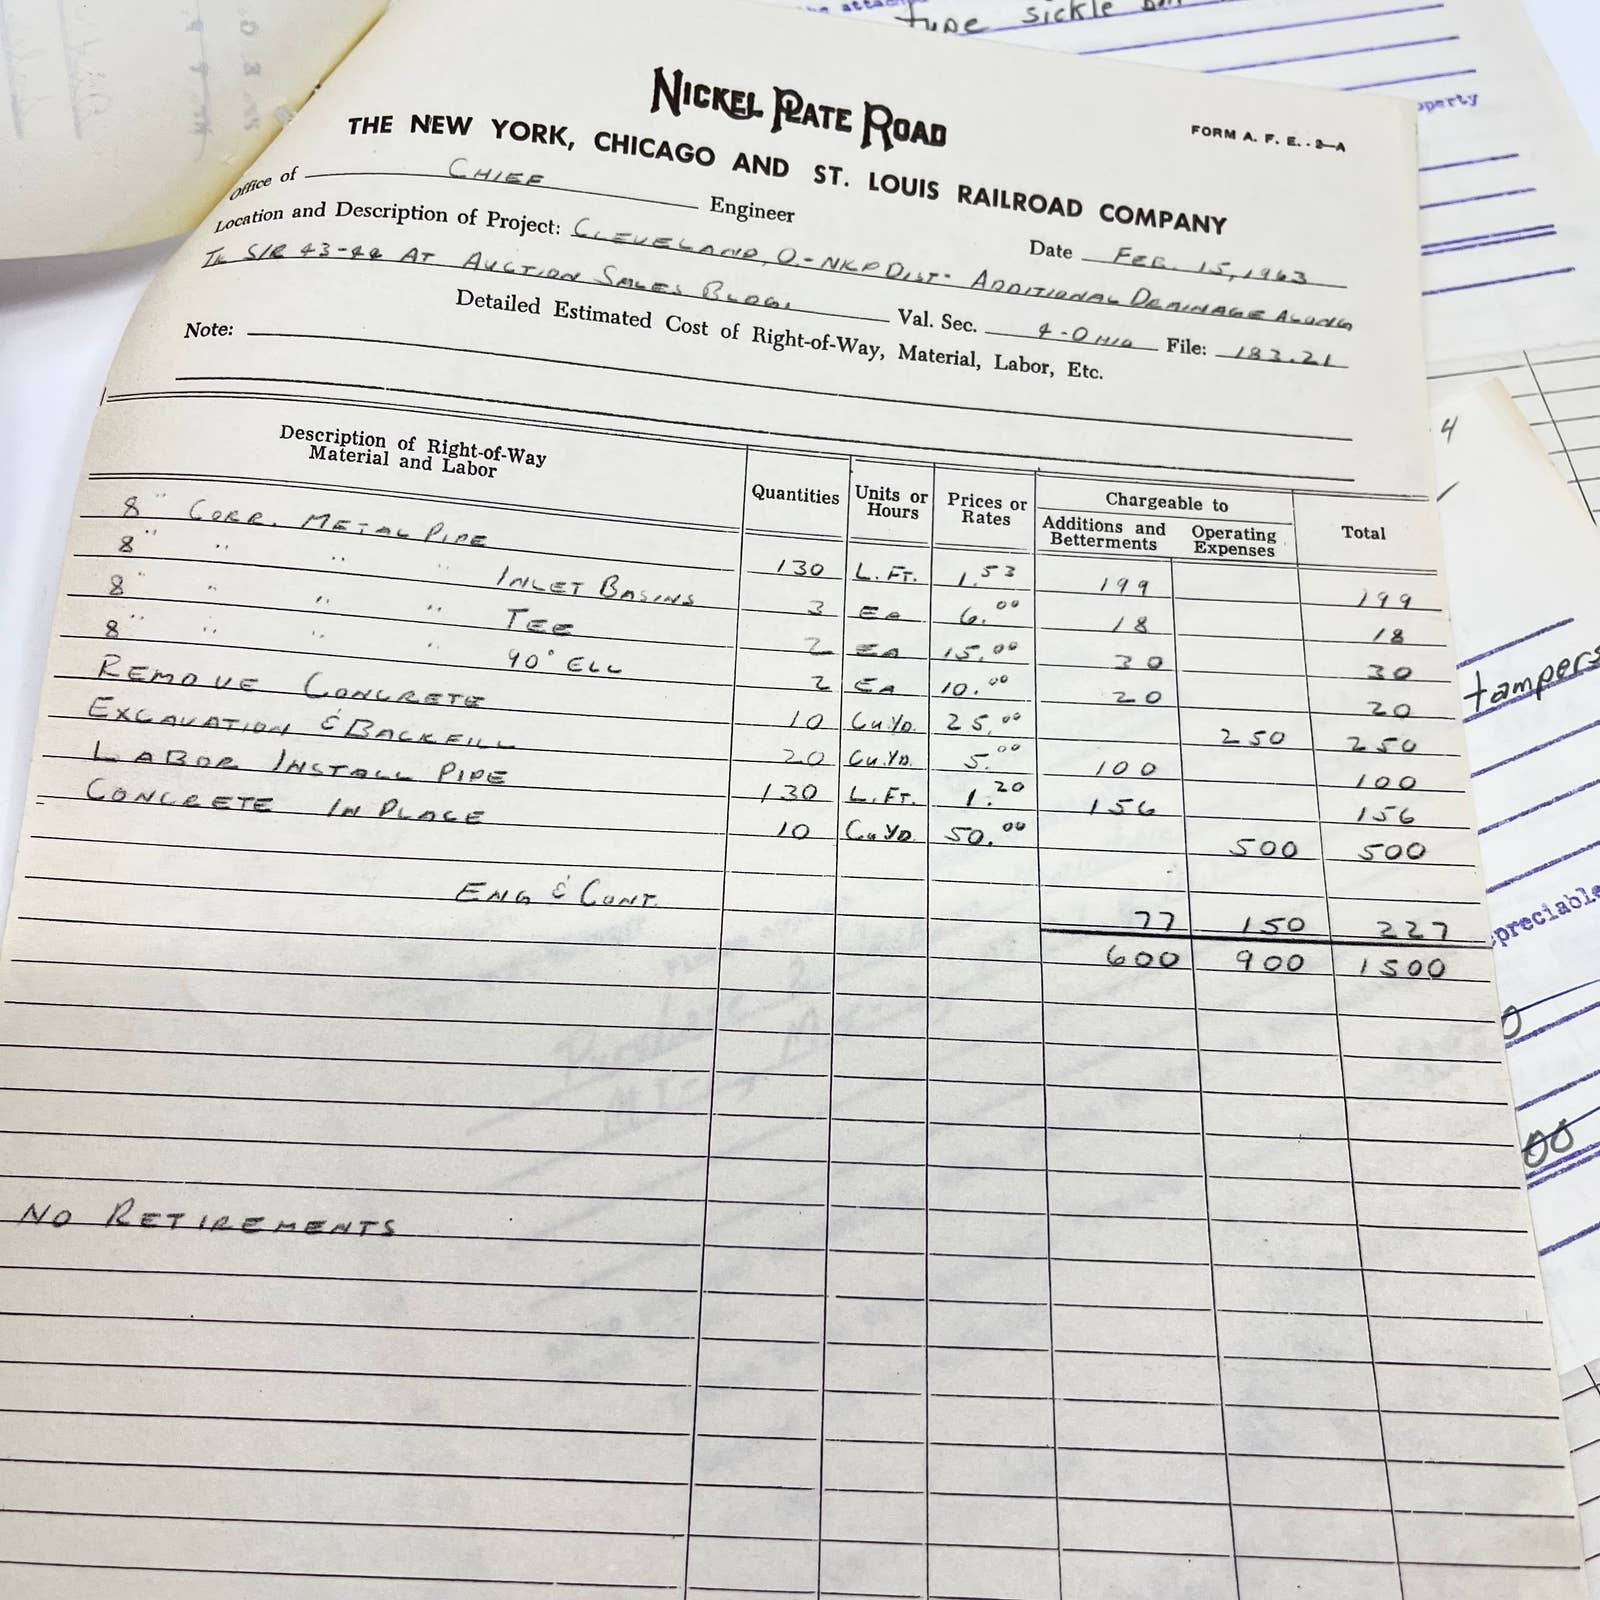 type sickle
NICKEL PLATE ROAD
FORM A. F. E. - 2-A
THE NEW YORK, CHICAGO AND ST. LOUIS RAILROAD COMPANY
Office of CHIEF Engineer
Date FEB. 15, 1963
Location and Description of Project: CLEVELAND, O. - NKP DIST - ADDITIONAL DRAINAGE ALONG
S/R 43-44 AT AUCTION SALES BLDG. Val. Sec. 4-OHIO File: 183.21
Detailed Estimated Cost of Right-of-Way, Material, Labor, Etc.
Note:
Description of Right-of-Way Material and Labor Quantities Units or Hours Prices or Rates Chargeable to Total
Additions and Betterments Operating Expenses
8" CORR. METAL PIPE 130 L. FT. 1.53 199 199
8" " " " INLET BASINS 3 EA 6.00 18 18
8" " " " TEE 2 EA 15.00 30 30
8" " " " 90° ELL 2 EA 10.00 20 20
REMOVE CONCRETE 10 CU.YD. 25.00 250 250
EXCAVATION & BACKFILL 20 CU.YD. 5.00 100 100
LABOR INSTALL PIPE 130 L. FT. 1.20 156 156
CONCRETE IN PLACE 10 CU YD. 50.00 500 500
ENG & CONT. 77 150 227
600 900 1500
NO RETIREMENTS
4
tampers
00